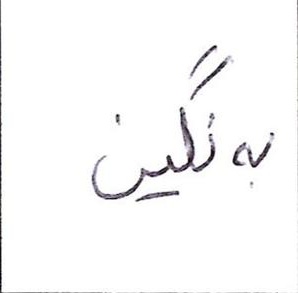 به نگین